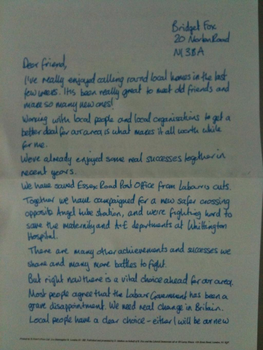 Bridget Fox
20 Norton Road
N1 3BA
Dear friend,
I've really enjoyed calling round local homes in the last
few weeks. It's been really great to meet old friends and
make so many new ones!
Working with local people and local organisations to get a
better deal for our area is what makes it all worth while
for me.
We've already enjoyed some real successes together in
recent years.
We have saved Essex Road Post Office from Labour's cuts.
Together we have campaigned for a new safer crossing
opposite Angel tube station, and we're fighting hard to
save the maternity and A+E departments at Whittington
Hospital.
There are many other achievements and successes we
share and many more battles to fight.
But right now there is a vital choice ahead for our area.
Most people agree that the Labour Government has been a
grave disappointment. We need real change in Britain.
Local people have a clear choice - either I will be our new